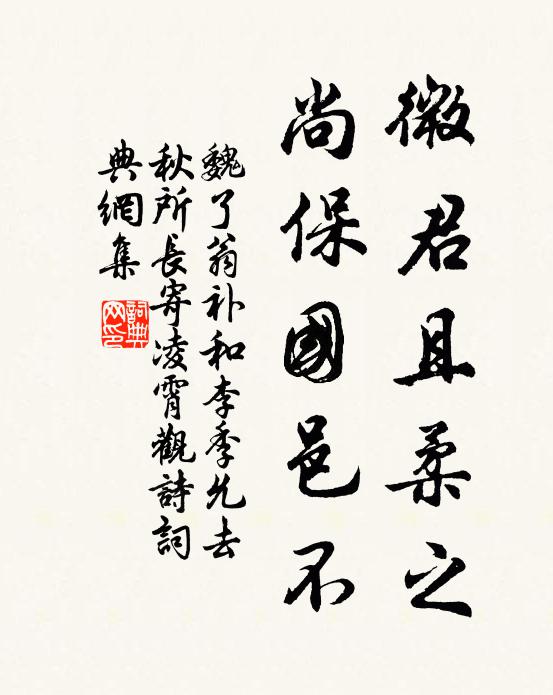 微君且柔之
尚保國邑不
魏了翁补和李季允去
秋所長寄凌霄觀詩詞
典網集
詞典網印